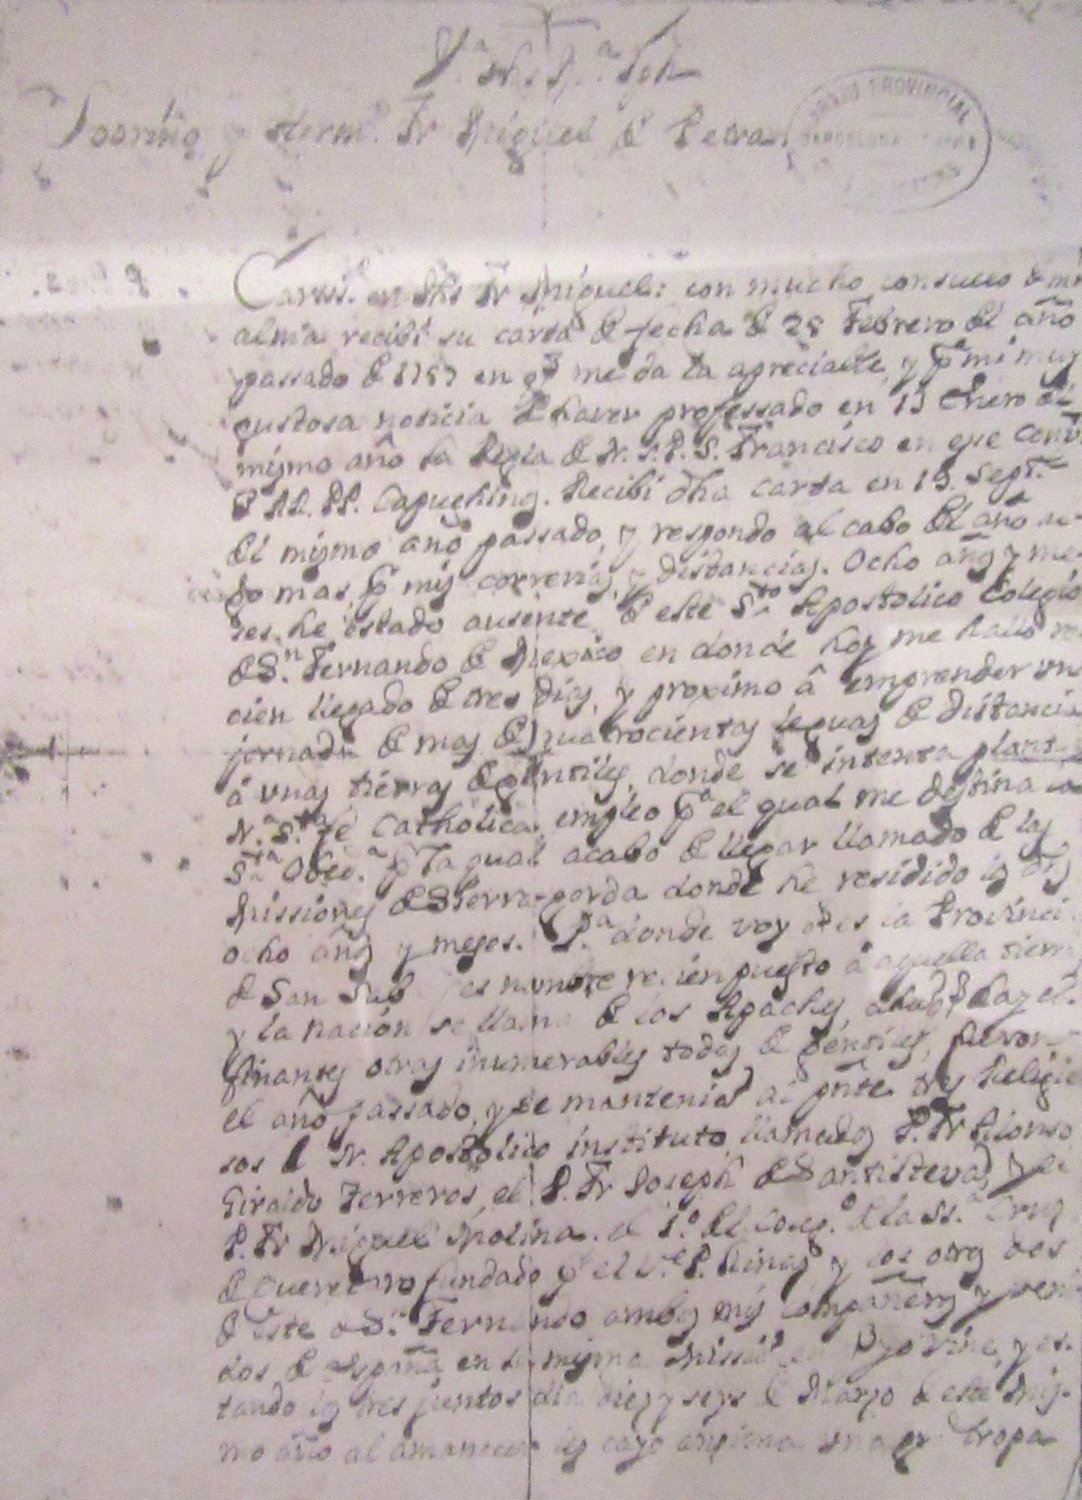 Sobrino, y Herm.º Fr Miguel de Petra
ARCHIVO PROVINCIAL
Cariss.º en Xhs Fr Miguel: con mucho consuelo de mi
alma recibi su carta de fecha de 28 Febrero del año
passado de 1757 en q.e me da la apreciable, y p.a mi muy
gustosa noticia de haver professado en 13 Enero del
mismo año la Regla de N. S. P. S. Francisco en ese Conv
de RR. PP. Capuchinos. Recibi dha carta en 19. Sept.e
del mismo año passado, y respondo al cabo del año
mas p.r mis correrias, y distancias. Ocho años y me-
ses he estado ausente de este S.to Apostolico Colegio
de S.n Fernando de Mexico en donde hoy me hallo re-
cien llegado de tres dias, y proximo â emprender un
jornada de mas de quatrocientas leguas de distancia
â unas tierras de gentiles, donde se intenta plant
N.a S.ta Fe Catholica, empleo p.a el qual me destina la
S.ta Obed.a p.r la qual acabo de llegar llamado de las
Missiones de Sierra-gorda donde he residido los dhos
ocho años y meses. P.a donde voy es la Provinci
de San Sab es nombre recien puesto â aquella tierra
y la nacion se llama de los Apaches, hay
finantes otras inumerables todas de gentiles,
el año passado, y se mantenian al pñte tres Religio
sos de N. Apostolico instituto llamados P. Fr Alonso
Giraldo Terreros, el P. Fr Joseph de Santistevan, y el
P. Fr Miguel Molina. el 1.º del Coleg.º de la S.ta Cruz
de Queretaro fundado p.r el V.e P. Linas y los otros dos
de este de S.n Fernando ambos mis compañeros y veni
dos de España en la misma Mission en q.e yo vine, y es-
tando los tres juntos dia diez y seys de Marzo de este mis-
mo año al amanecer les cayo ensima una gr tropa